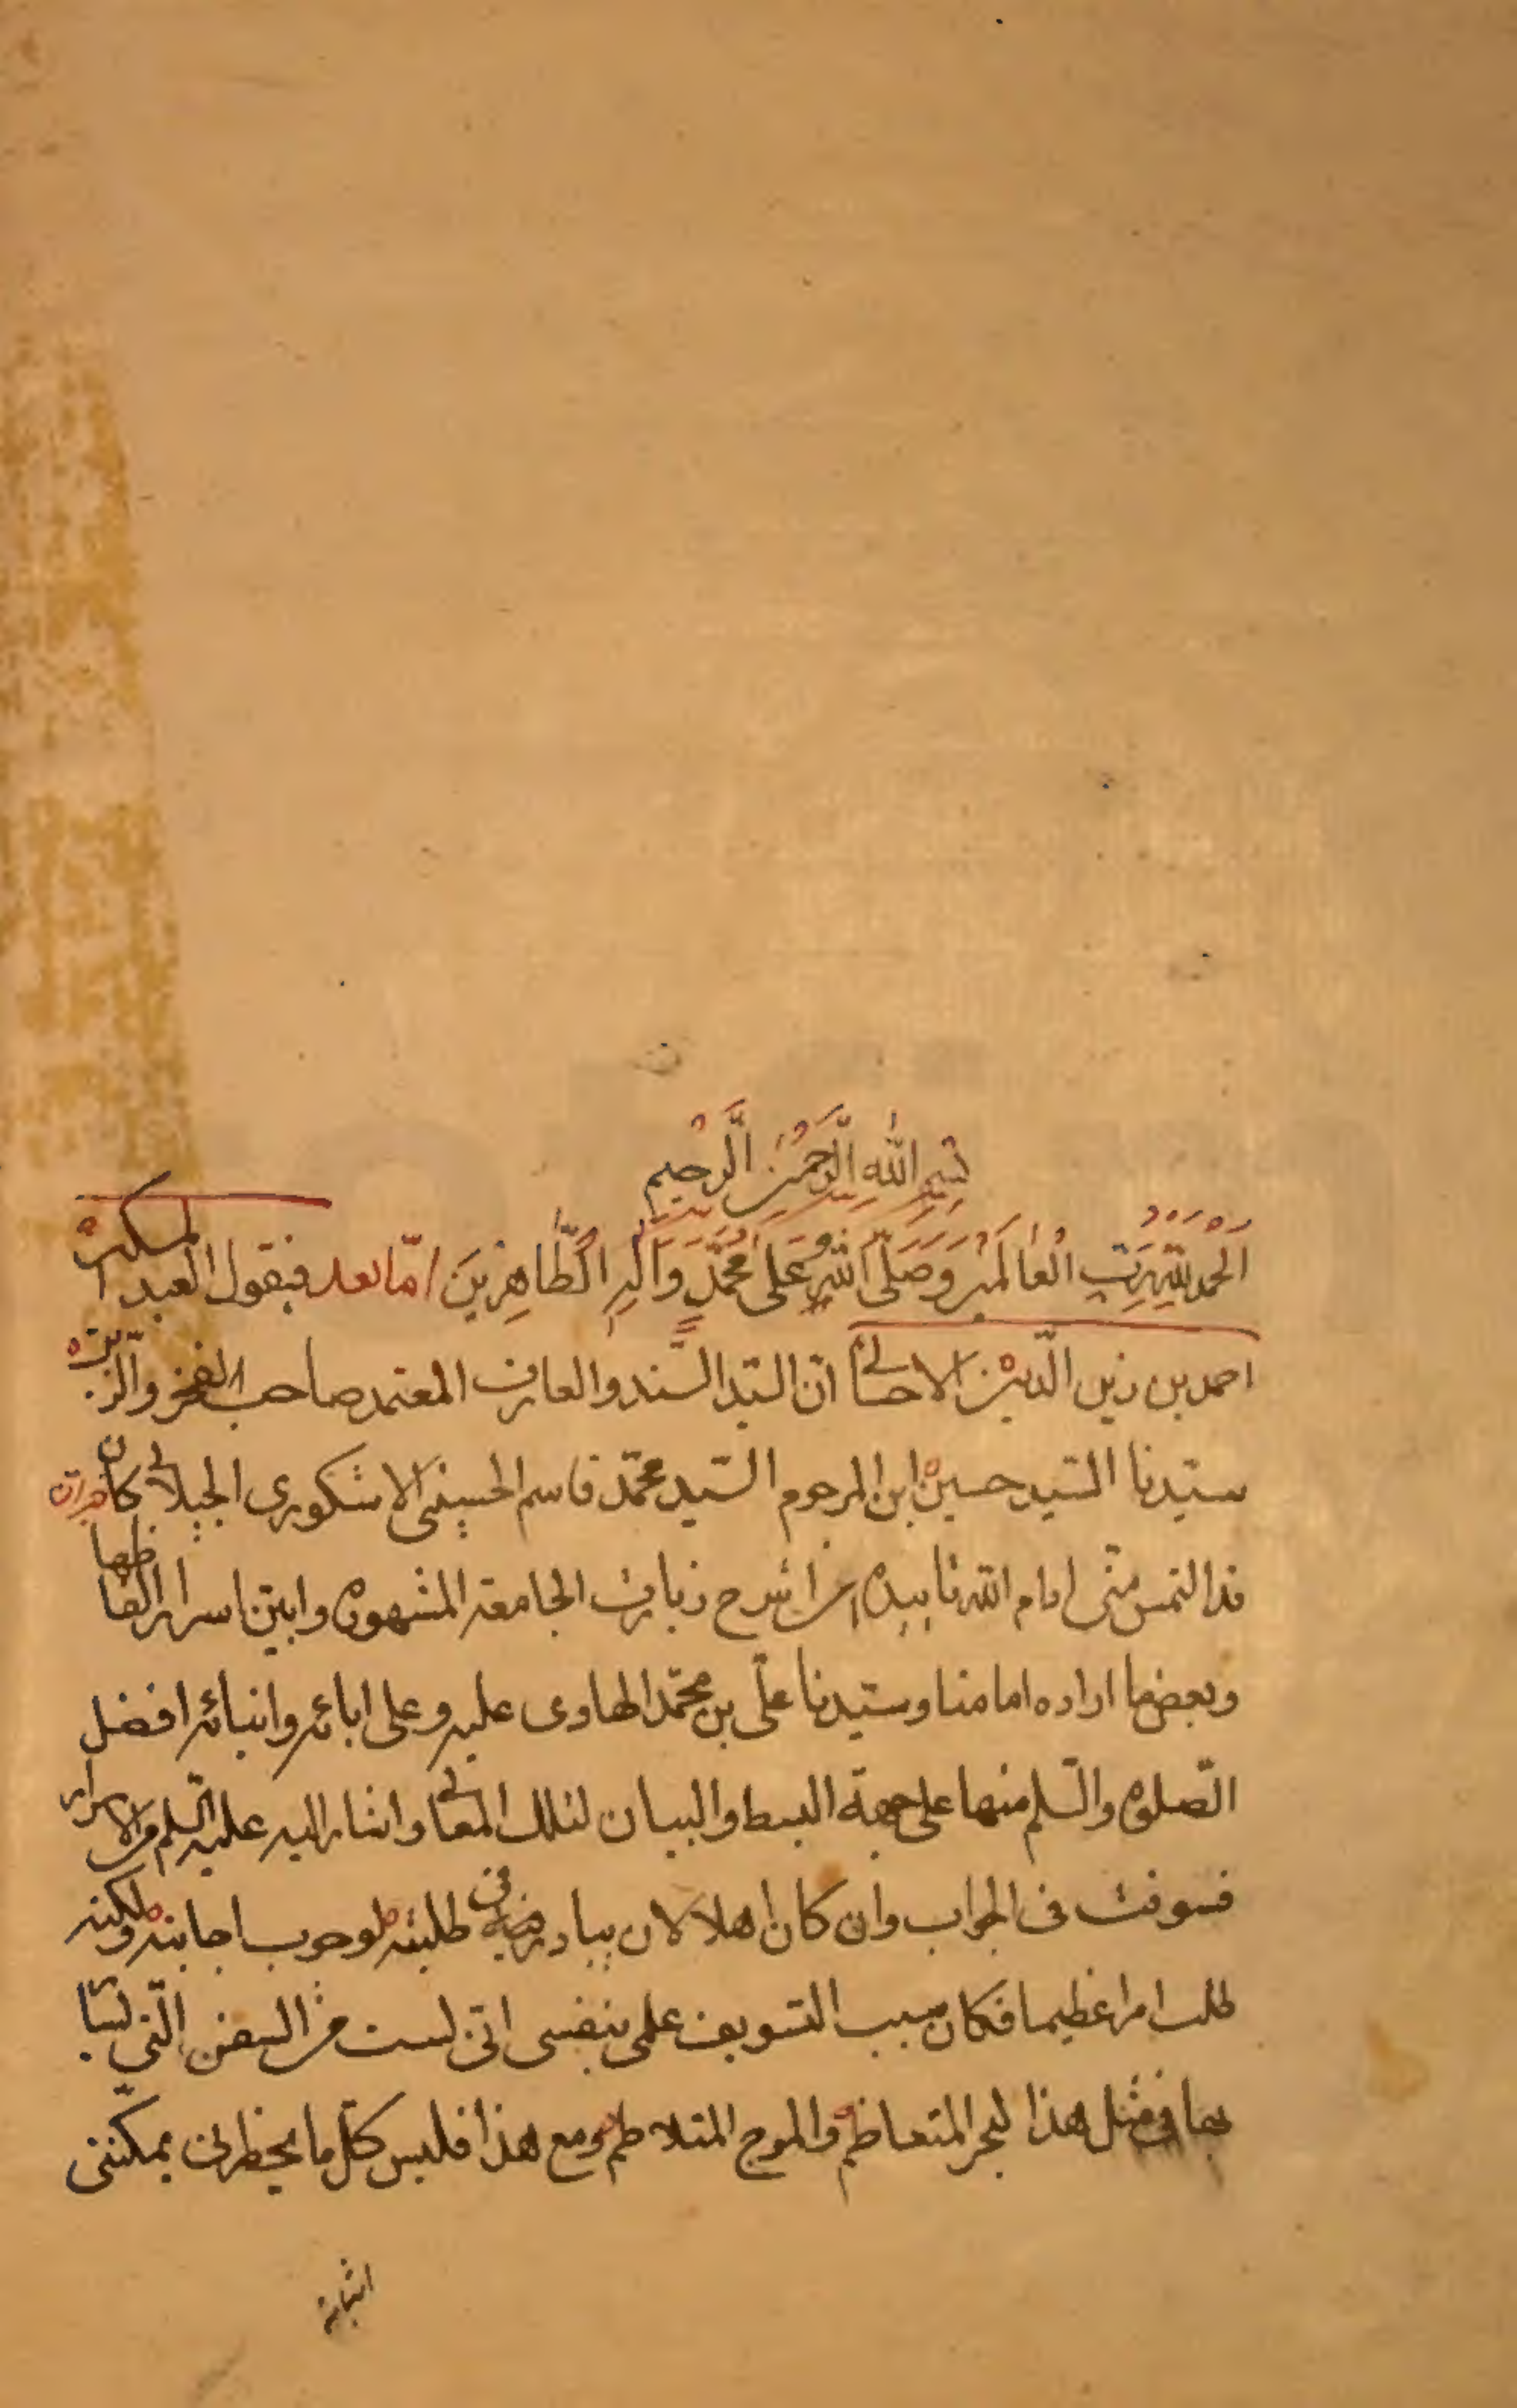 بِسْمِ اللّٰهِ الرَّحْمٰنِ الرَّحِيمِ
اَلْحَمْدُ لِلّٰهِ رَبِّ الْعَالَمِينَ وَصَلَّى اللّٰهُ عَلٰى مُحَمَّدٍ وَآلِهِ الطَّاهِرِينَ امّا بعد فيقول العبد المسكين
احمد بن زين الدّين الاحسائى انّ السّيّد السّند والعارف المعتمد صاحب الفخر والزين
سيّدنا السّيد حسين ابن المرحوم السّيد محمّد قاسم الحسينى الاشكورى الجيلانى كان
قد التمس منّى ادام اللّه تاييده ان اشرح زيارت الجامعة المشهوره وابيّن اسرار الفاظها
وبعض ما اراده امامنا وسيّدنا علّى بن محمّد الهادى عليه وعلى ابائه وابنائه افضل
الصّلوة والسّلم منها على جهة البسط والبيان لتلك المعانى واشار اليه عليه السّلم من الاسرار
فسوفت فى الجواب وان كان اهلا لان يبادر فى طلبته لوجوب اجابته ولكنه
طلب امرا عظيما فكان سبب التسويف علمى بنفسى انّى لست من السفن الّتى
بها فى مثل هذا لبحر المتعاظم والموج المتلاطم ومع هذا فليس كلّ ما يخطر لى يمكننى
اثباته